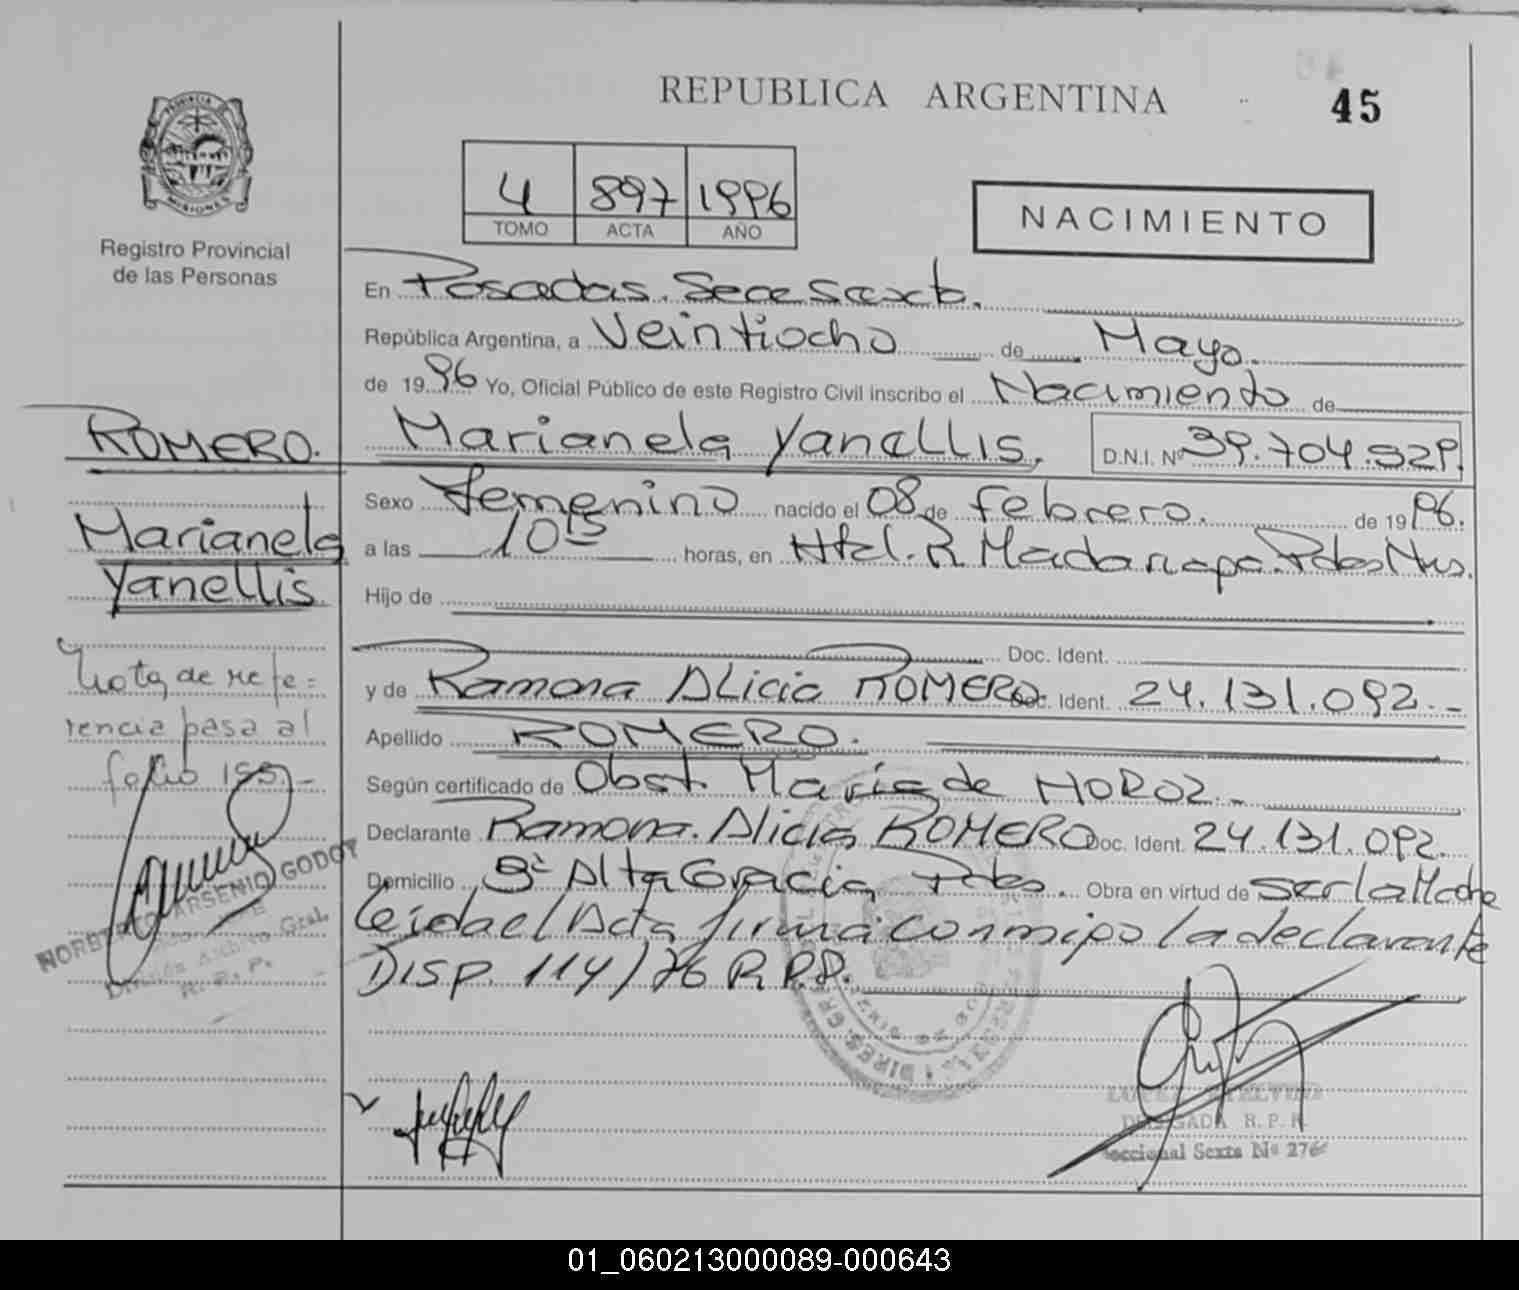 REPUBLICA ARGENTINA
45
PROVINCIA DE
MISIONES
Registro Provincial
de las Personas
4 897 1996
TOMO ACTA AÑO
NACIMIENTO
En Posadas. Secc Sexta.
República Argentina, a Veintiocho de Mayo.
de 1996 Yo, Oficial Público de este Registro Civil inscribo el Nacimiento de
ROMERO. Marianela Yanellis. D.N.I. Nº 39.704.929.
Sexo Femenino nacido el 08 de Febrero. de 1996.
Marianela
a las 10 15 horas, en Htal. R Madariaga. Pdas Mns.
Yanellis
Hijo de
Doc. Ident.
Nota de refe=
y de Ramona ALicia ROMERO Doc. Ident. 24.131.092.-
rencia pasa al
Apellido ROMERO.
folio 193.-
Según certificado de Obst. María de HOROZ.-
Declarante Ramona. Alicia ROMERO Doc. Ident. 24.131.092.
Domicilio Bº Alta Gracia, Pdas. Obra en virtud de ser la Madre
Leída el Acta, firma conmigo la declarante
DISP. 114/76 R.P.P.
NORBERTO ARSENIO GODOY
División Archivo Gral.
R. P. P.
DELEGADA R. P. P.
Seccional Sexta Nº 276
01_060213000089-000643